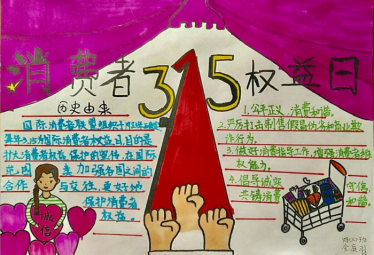 消费者315权益日
历史由来
国际消费者联盟组织于1983年确定
每年3.15为国际消费者权益日,目的是
扩大消费者权益保护的宣传,在国际
范围 加强各国之间的
合作 与交往,更好地
保护消费者
权益。
诚信
1.公平正义,消费和谐。
2.严厉打击制售假冒伪劣和商业欺
诈行为。
3.做好消费指导工作,增强消费者维
权能力。
4.倡导诚实守信,
共铸消费和谐。